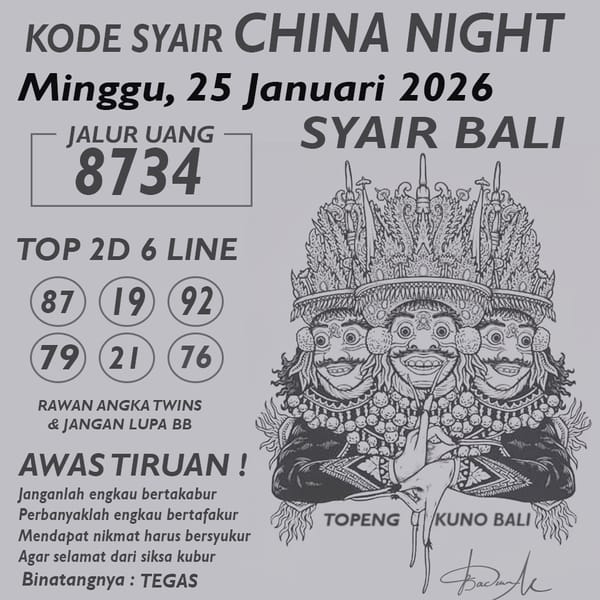 KODE SYAIR CHINA NIGHT
Minggu, 25 Januari 2026
SYAIR BALI
JALUR UANG
8734
TOP 2D 6 LINE
87 19 92
79 21 76
RAWAN ANGKA TWINS
& JANGAN LUPA BB
AWAS TIRUAN !
Janganlah engkau bertakabur
Perbanyaklah engkau bertafakur
Mendapat nikmat harus bersyukur
Agar selamat dari siksa kubur
Binatangnya : TEGAS
TOPENG KUNO BALI